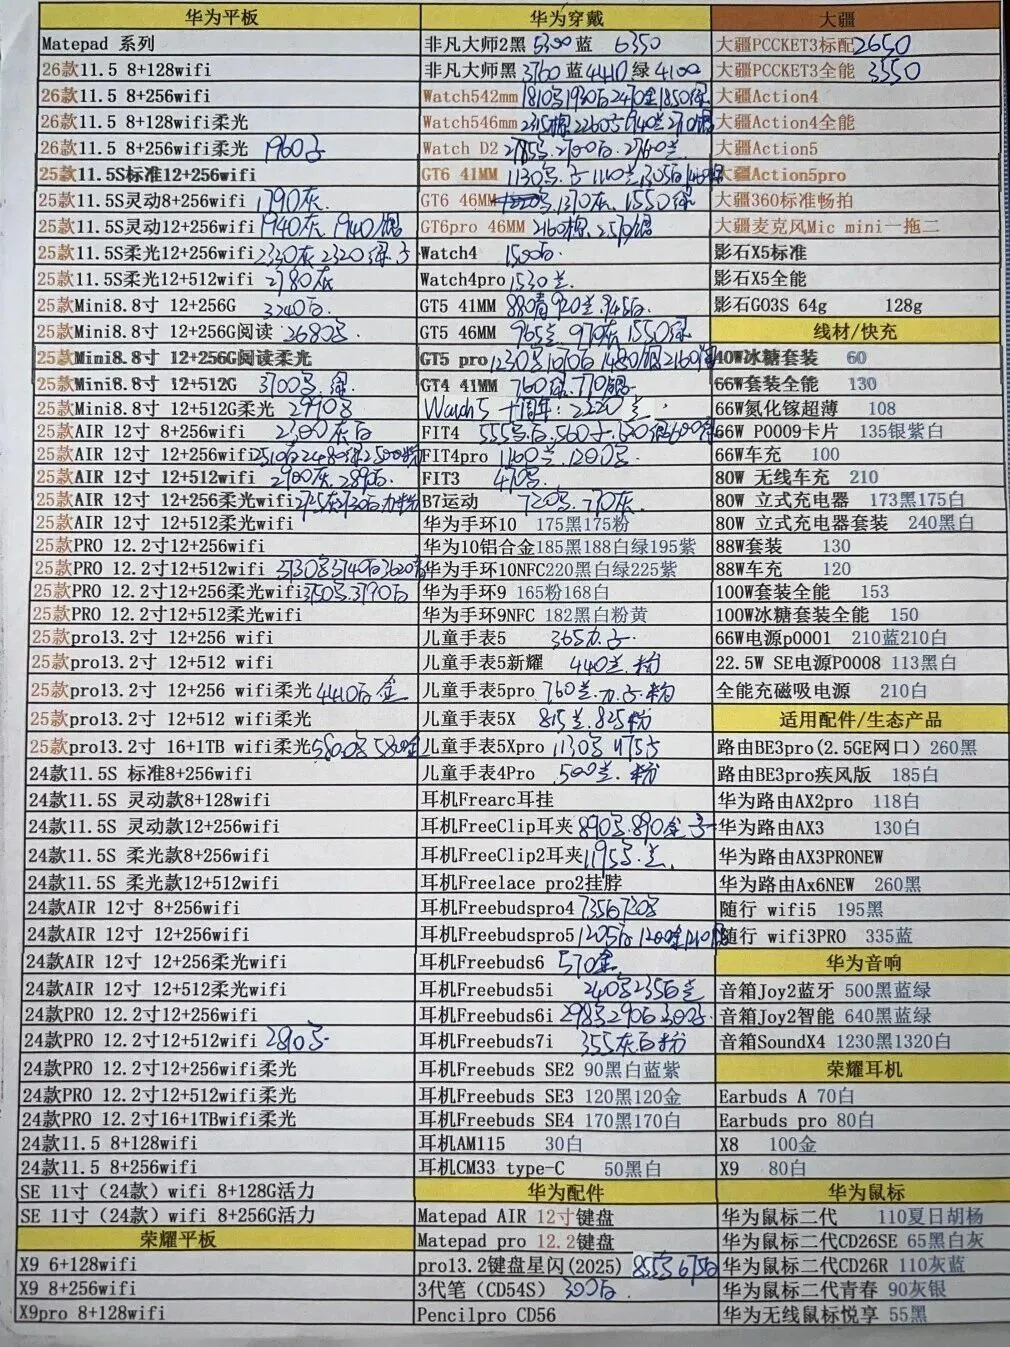 华为平板
Matepad 系列
26款11.5 8+128wifi
26款11.5 8+256wifi
26款11.5 8+128wifi柔光
26款11.5 8+256wifi柔光 1960
25款11.5S标准12+256wifi
25款11.5S灵动8+256wifi 1790灰
25款11.5S灵动12+256wifi 1940灰 1940
25款11.5S柔光12+256wifi 2330灰 2320
25款11.5S柔光12+512wifi 2780灰
25款Mini8.8寸 12+256G 3240白
25款Mini8.8寸 12+256G阅读 2680
25款Mini8.8寸 12+256G阅读柔光
25款Mini8.8寸 12+512G 3700
25款Mini8.8寸 12+512G柔光 2990
25款AIR 12寸 8+256wifi 2300灰白
25款AIR 12寸 12+256wifi
25款AIR 12寸 12+512wifi
25款AIR 12寸 12+256柔光wifi
25款AIR 12寸 12+512柔光wifi
25款PRO 12.2寸12+256wifi
25款PRO 12.2寸12+512wifi
25款PRO 12.2寸12+256柔光wifi
25款PRO 12.2寸12+512柔光wifi
25款pro13.2寸 12+256 wifi
25款pro13.2寸 12+512 wifi
25款pro13.2寸 12+256 wifi柔光 4440白 金
25款pro13.2寸 12+512 wifi柔光
25款pro13.2寸 16+1TB wifi柔光
24款11.5S 标准8+256wifi
24款11.5S 灵动款8+128wifi
24款11.5S 灵动款12+256wifi
24款11.5S 柔光款8+256wifi
24款11.5S 柔光款12+512wifi
24款AIR 12寸 8+256wifi
24款AIR 12寸 12+256wifi
24款AIR 12寸 12+256柔光wifi
24款AIR 12寸 12+512柔光wifi
24款PRO 12.2寸12+256wifi
24款PRO 12.2寸12+512wifi 2890
24款PRO 12.2寸12+256wifi柔光
24款PRO 12.2寸12+512wifi柔光
24款PRO 12.2寸16+1TBwifi柔光
24款11.5 8+128wifi
24款11.5 8+256wifi
SE 11寸（24款）wifi 8+128G活力
SE 11寸（24款）wifi 8+256G活力
荣耀平板
X9 6+128wifi
X9 8+256wifi
X9pro 8+128wifi
华为穿戴
非凡大师2黑 5300 蓝 6350
非凡大师黑 3760 蓝4410 绿 4100
Watch542mm
Watch546mm
Watch D2
GT6 41MM
GT6 46MM
GT6pro 46MM
Watch4 1500
Watch4pro 1530兰
GT5 41MM
GT5 46MM
GT5 pro
GT4 41MM
Watch5 十周年: 2220兰
FIT4
FIT4pro
FIT3 470
B7运动 720 770灰
华为手环10 175黑175粉
华为10铝合金185黑188白绿195紫
华为手环10NFC220黑白绿225紫
华为手环9 165粉168白
华为手环9NFC 182黑白粉黄
儿童手表5 365
儿童手表5新耀 440兰.粉
儿童手表5pro 760兰
儿童手表5X 815兰.825粉
儿童手表5Xpro 1130
儿童手表4Pro 500兰.粉
耳机Frearc耳挂
耳机FreeClip耳夹
耳机FreeClip2耳夹
耳机Freelace pro2挂脖
耳机Freebudspro4
耳机Freebudspro5
耳机Freebuds6 570金
耳机Freebuds5i
耳机Freebuds6i
耳机Freebuds7i 355灰白粉
耳机Freebuds SE2 90黑白蓝紫
耳机Freebuds SE3 120黑120金
耳机Freebuds SE4 170黑170白
耳机AM115 30白
耳机CM33 type-C 50黑白
华为配件
Matepad AIR 12寸键盘
Matepad pro 12.2键盘
pro13.2键盘星闪(2025)
3代笔（CD54S） 300白
Pencilpro CD56
大疆
大疆PCCKET3标配2650
大疆PCCKET3全能 3550
大疆Action4
大疆Action4全能
大疆Action5
大疆Action5pro
大疆360标准畅拍
大疆麦克风Mic mini一拖二
影石X5标准
影石X5全能
影石GO3S 64g 128g
线材/快充
40W冰糖套装 60
66W套装全能 130
66W氮化镓超薄 108
66W P0009卡片 135银紫白
66W车充 100
80W 无线车充 210
80W 立式充电器 173黑175白
80W 立式充电器套装 240黑白
88W套装 130
88W车充 120
100W套装全能 153
100W冰糖套装全能 150
66W电源p0001 210蓝210白
22.5W SE电源P0008 113黑白
全能充磁吸电源 210白
适用配件/生态产品
路由BE3pro(2.5GE网口) 260黑
路由BE3pro疾风版 185白
华为路由AX2pro 118白
华为路由AX3 130白
华为路由AX3PRONEW
华为路由Ax6NEW 260黑
随行 wifi5 195黑
随行 wifi3PRO 335蓝
华为音响
音箱Joy2蓝牙 500黑蓝绿
音箱Joy2智能 640黑蓝绿
音箱SoundX4 1230黑1320白
荣耀耳机
Earbuds A 70白
Earbuds pro 80白
X8 100金
X9 80白
华为鼠标
华为鼠标二代 110夏日胡杨
华为鼠标二代CD26SE 65黑白灰
华为鼠标二代CD26R 110灰蓝
华为鼠标二代青春 90灰银
华为无线鼠标悦享 55黑